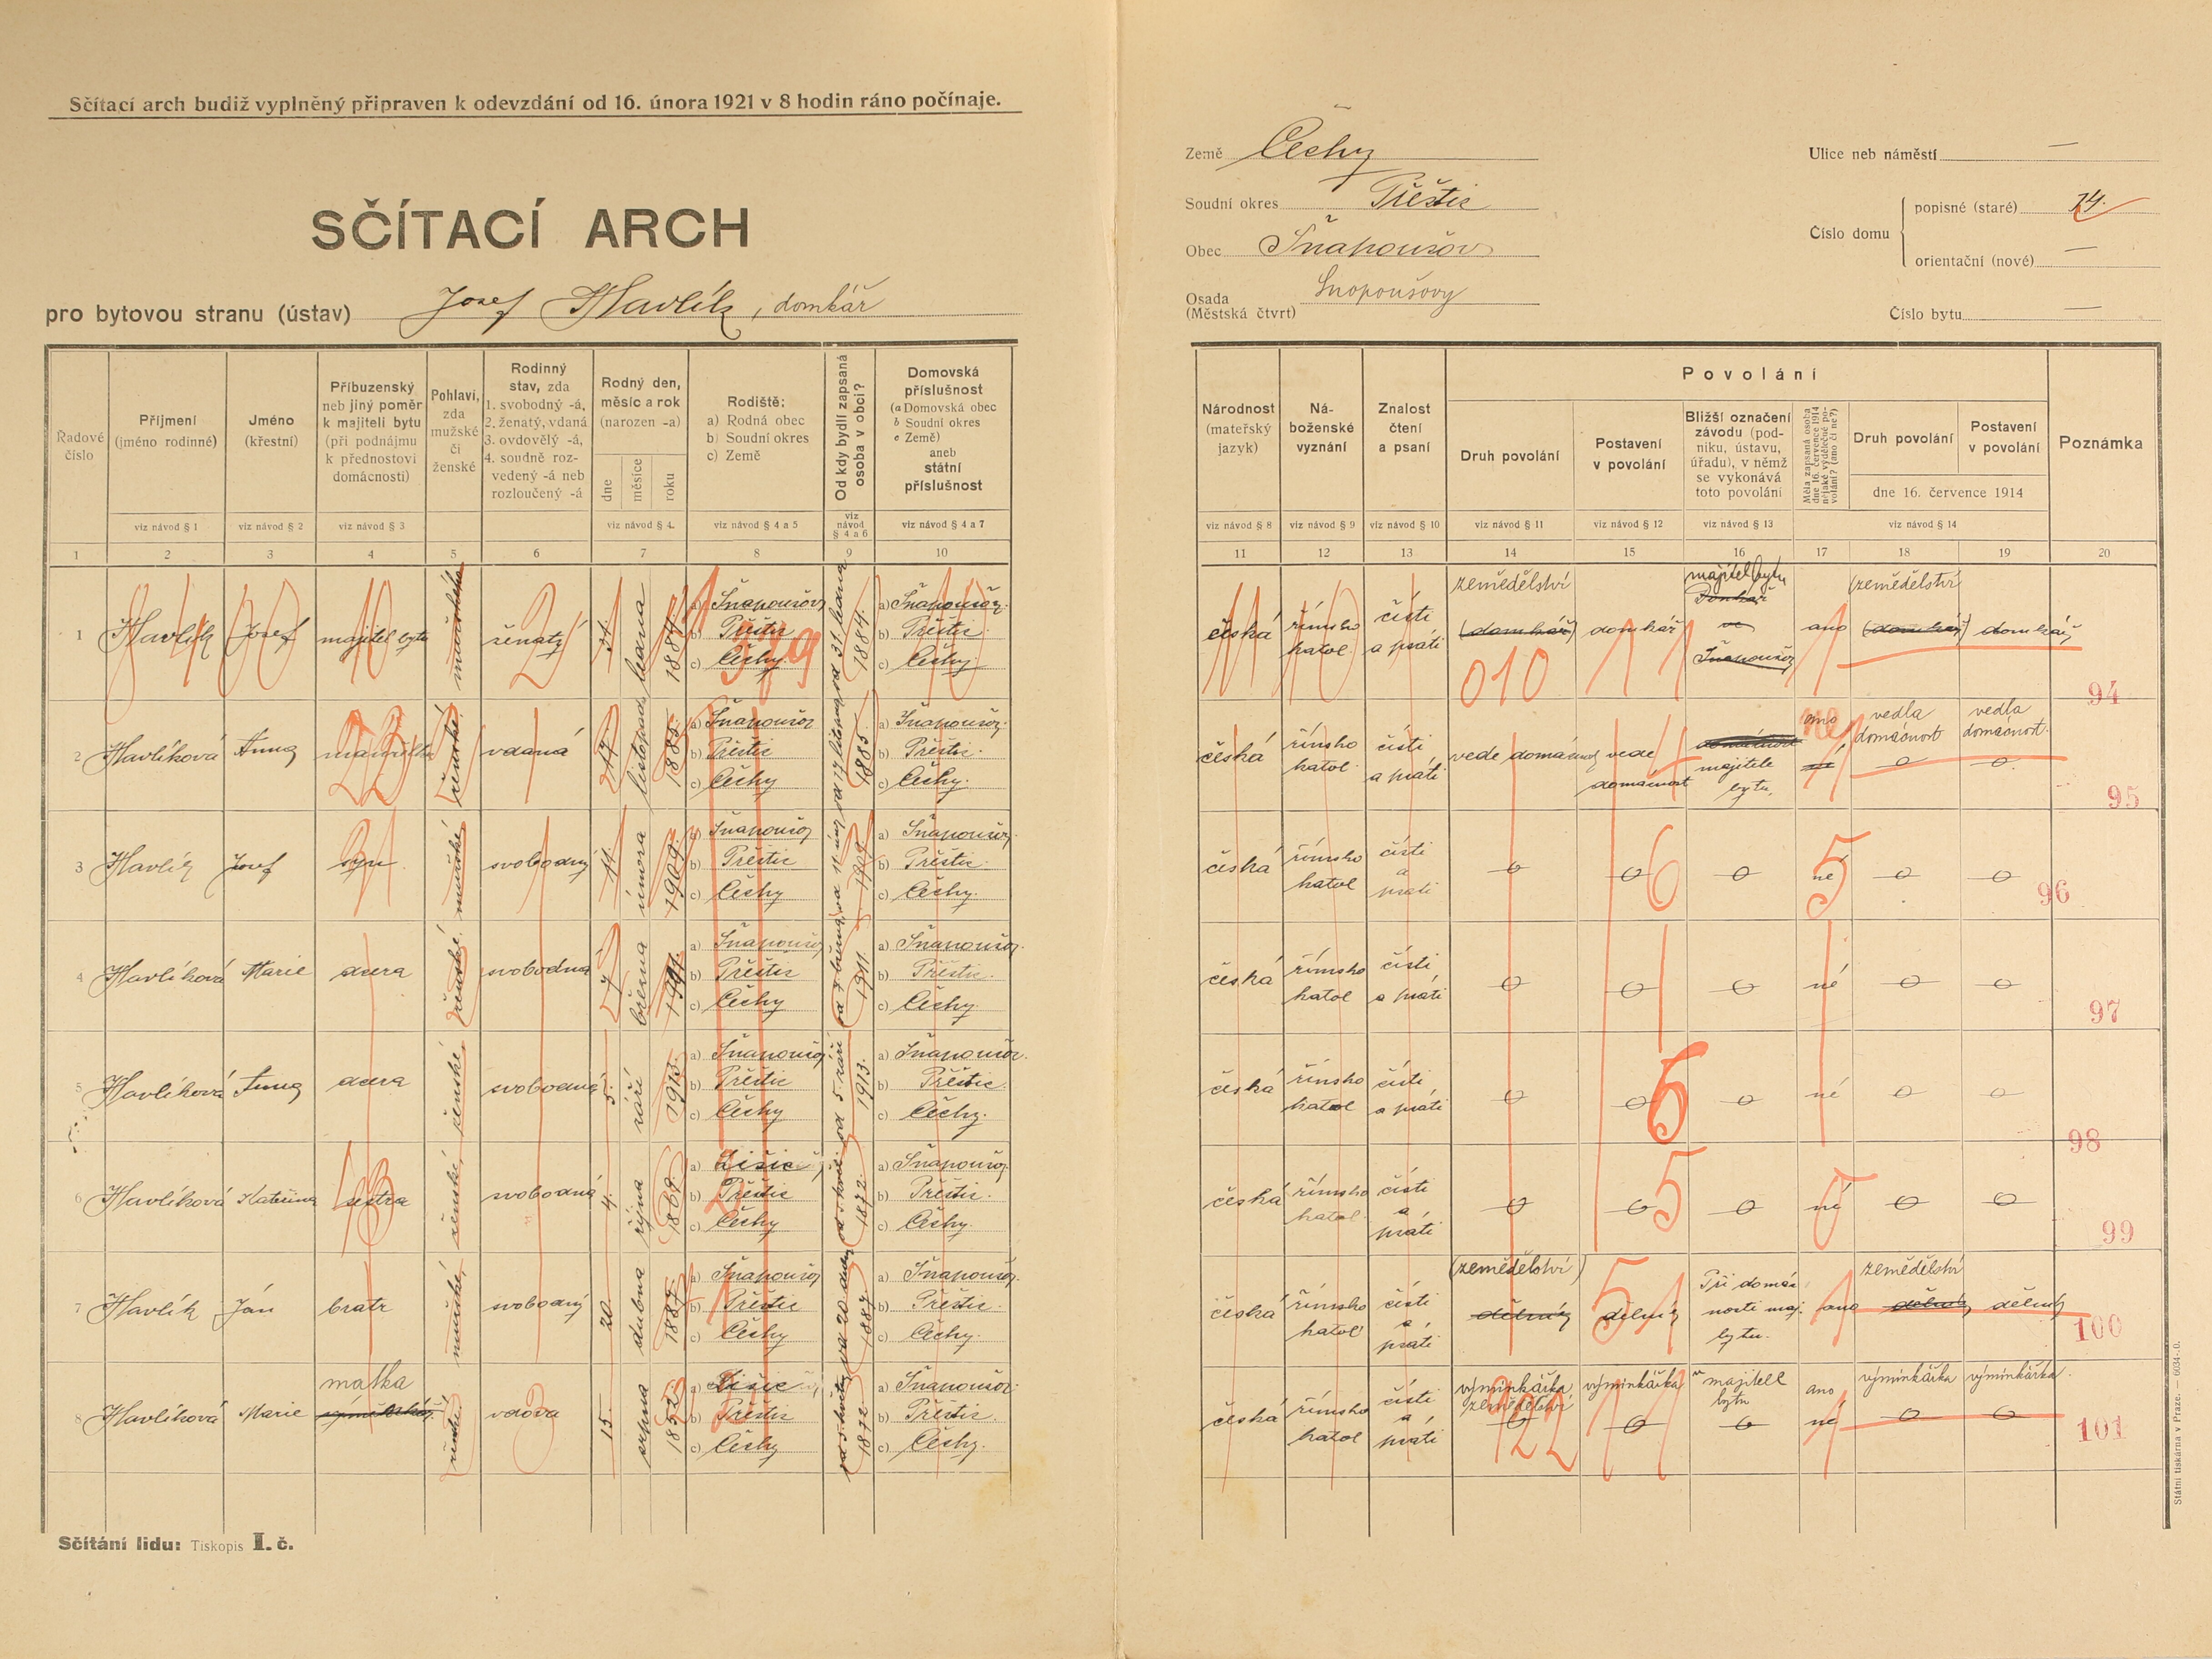 Sčítací arch budiž vyplněný připraven k odevzdání od 16. února 1921 v 8 hodin ráno počínaje.
SČÍTACÍ ARCH
pro bytovou stranu (ústav) Josef Havlík, domkář
Řadové číslo
Příjmení (jméno rodinné)
viz návod § 1
Jméno (křestní)
viz návod § 2
Příbuzenský neb jiný poměr k majiteli bytu (při podnájmu k přednostovi domácnosti)
viz návod § 3
Pohlaví, zda mužské či ženské
Rodinný stav, zda
1. svobodný -á,
2. ženatý, vdaná
3. ovdovělý -á,
4. soudně rozvedený -á neb rozloučený -á
Rodný den, měsíc a rok (narozen -a)
dne měsíce roku
viz návod § 4.
Rodiště:
a) Rodná obec
b) Soudní okres
c) Země
viz návod § 4 a 5
Od kdy bydlí zapsaná osoba v obci?
viz návod § 4 a 6
Domovská příslušnost
(a Domovská obec
b Soudní okres
c Země)
aneb
státní příslušnost
viz návod § 4 a 7
1 2 3 4 5 6 7 8 9 10
1 Havlík Josef majitel bytu mužského ženatý 31. ledna 1884.
a) Šnapoušov b) Přeštic c) Čechy
od 31. ledna 1884.
a) Šnapoušov b) Přeštic c) Čechy
2 Havlíková Anna manželka ženské vdaná 17. listopad 1885.
a) Šnapoušov b) Přeštic c) Čechy
1885.
a) Šnapoušov b) Přeštic. c) Čechy.
3 Havlík Josef syn mužské svobodný 11. února 1909.
a) Šnapoušov b) Přeštic c) Čechy
1909.
a) Šnapoušov b) Přeštic. c) Čechy.
4 Havlíková Marie dcera ženské svobodná 7. března 1911.
a) Šnapoušov b) Přeštic c) Čechy
1911.
a) Šnapoušov b) Přeštic. c) Čechy.
5 Havlíková Anna dcera ženské svobodná 5. září 1913.
a) Šnapoušov b) Přeštic c) Čechy
od 5. září 1913.
a) Šnapoušov b) Přeštic. c) Čechy.
6 Havlíková Kateřina sestra ženské svobodná 4. října
b) Přeštic c) Čechy
1872.
a) Šnapoušov b) Přeštic. c) Čechy.
7 Havlík Ján bratr mužské svobodný 20. dubna 1887.
a) Šnapoušov b) Přeštic c) Čechy
od 20. dubna 1887.
a) Šnapoušov b) Přeštic. c) Čechy.
matka
8 Havlíková Marie vdova 15. srpna 1852.
b) Přeštic c) Čechy
1872.
a) Šnapoušov b) Přeštic. c) Čechy.
Sčítání lidu: Tiskopis I. č.
Země Čechy
Soudní okres Přeštic
Obec Šnapoušov
Osada (Městská čtvrt) Snopoušovy
Ulice neb náměstí —
Číslo domu
popisné (staré) 14.
orientační (nové) —
Číslo bytu —
Národnost (mateřský jazyk)
viz návod § 8
Náboženské vyznání
viz návod § 9
Znalost čtení a psaní
viz návod § 10
Povolání
Druh povolání
viz návod § 11
Postavení v povolání
viz návod § 12
Bližší označení závodu (podniku, ústavu, úřadu), v němž se vykonává toto povolání
viz návod § 13
Měla zapsaná osoba dne 16. července 1914 nějaké výdělečné povolání? (ano či ne?)
Druh povolání
Postavení v povolání
dne 16. července 1914
viz návod § 14
Poznámka
11 12 13 14 15 16 17 18 19 20
česká římsko katol čísti a psáti zemědělství (domkář) domkář majitel bytu ano zemědělství (domkář) domkář
010
94
česká římsko katol čísti a psáti vede domácnost vede domácnost majitele bytu. ano vedla domácnost vedla domácnost.
95
česká římsko katol čísti a psáti 0 0 0 né 0 0
96
česká římsko katol čísti a psáti 0 0 0 né 0 0
97
česká římsko katol čísti a psáti 0 0 0 né 0 0
98
česká římsko katol čísti a psáti 0 0 0 né 0 0
99
česká římsko katol čísti a psáti (zemědělství) dělník dělník Při domácnosti maj. bytu. ano zemědělství dělník dělník
100
česká římsko katol čísti a psáti výminkářka zemědělství výminkářka majitele bytu ano né výminkářka výminkářka.
101
Státní tiskárna v Praze. — 6034-.0.